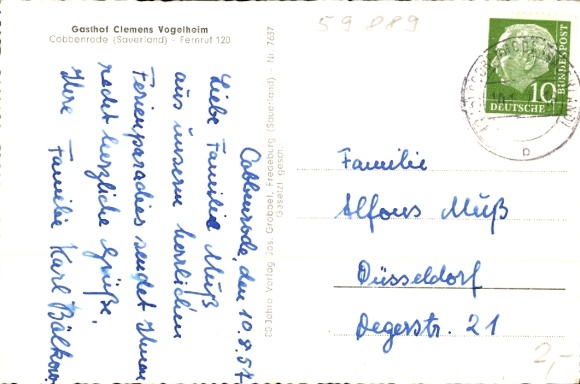 Gasthof Clemens Vogelheim
Cobbenrode (Sauerland) - Fernruf 120
59889
Cobbenrode, den 10.8.57
Liebe Familie Muß
aus unserm herrlichen
Ferienparadies sendet Ihnen
recht herzliche Grüße,
Ihre Familie Karl Bälkow
80 Jahre Verlag Jos. Grobbel, Fredeburg (Sauerland) Nr. 7637
Gesetzl. gesch.
DEUTSCHE
BUNDESPOST
10
b
Familie
Alfons Muß
Düsseldorf
Degerstr. 21
2,-